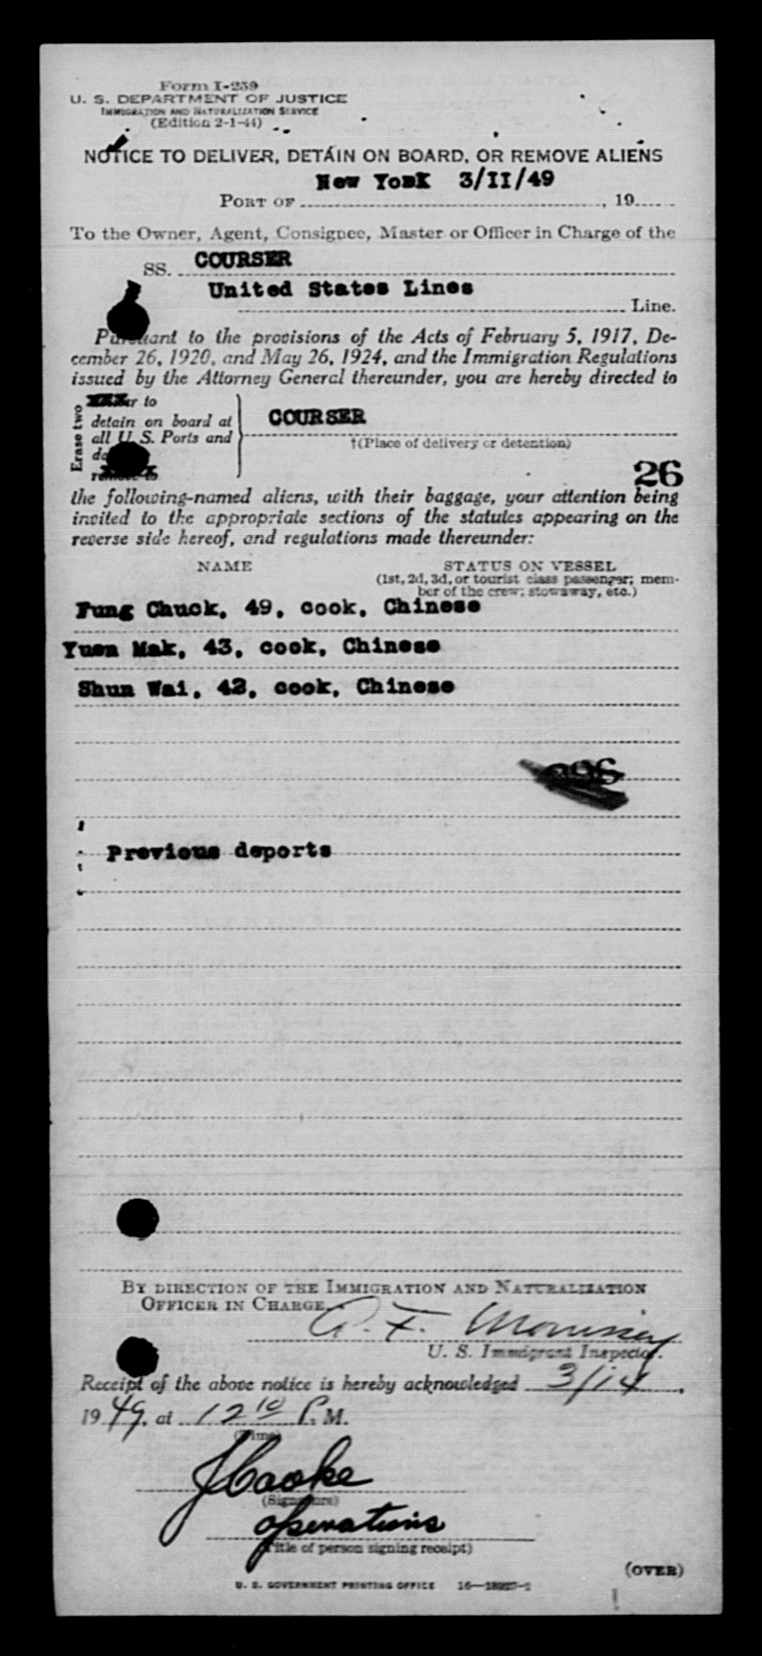 Form I-259
U. S. DEPARTMENT OF JUSTICE
IMMIGRATION AND NATURALIZATION SERVICE
(Edition 2-1-44)
NOTICE TO DELIVER, DETAIN ON BOARD, OR REMOVE ALIENS
New YoRK 3/II/49
PORT OF , 19
To the Owner, Agent, Consignee, Master or Officer in Charge of the
SS. COURSER
United States Lines
Line.
Pursuant to the provisions of the Acts of February 5, 1917, De-
cember 26, 1920, and May 26, 1924, and the Immigration Regulations
issued by the Attorney General thereunder, you are hereby directed to
Erase two
to
detain on board at
all U. S. Ports and
COURSER
†(Place of delivery or detention)
26
the following-named aliens, with their baggage, your attention being
invited to the appropriate sections of the statutes appearing on the
reverse side hereof, and regulations made thereunder:
NAME STATUS ON VESSEL
(1st, 2d, 3d, or tourist class passenger; mem-
ber of the crew; stowaway, etc.)
Fung Chuck, 49, cook, Chinese
Yuen Mak, 43, cook, Chinese
Shun Wai, 42, cook, Chinese
Previous deports
BY DIRECTION OF THE IMMIGRATION AND NATURALIZATION
OFFICER IN CHARGE
U. S. Immigrant Inspector.
Receipt of the above notice is hereby acknowledged 3/14,
1949, at 12 10 P. M.
(Time)
J Cooke
(Signature)
operations
(Title of person signing receipt)
(OVER)
U. S. GOVERNMENT PRINTING OFFICE